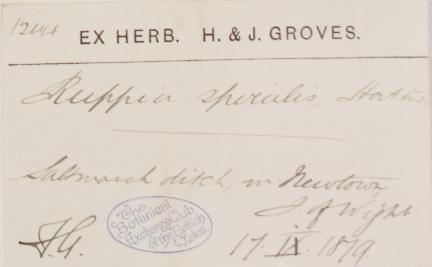 1244
EX HERB. H. & J. GROVES.
Ruppia spiralis,
Saltmarsh ditch, nr. Newtown,
I. of Wight
The Botanical Exchange Club of the British Isles.
H.G. 17. IX. 1879